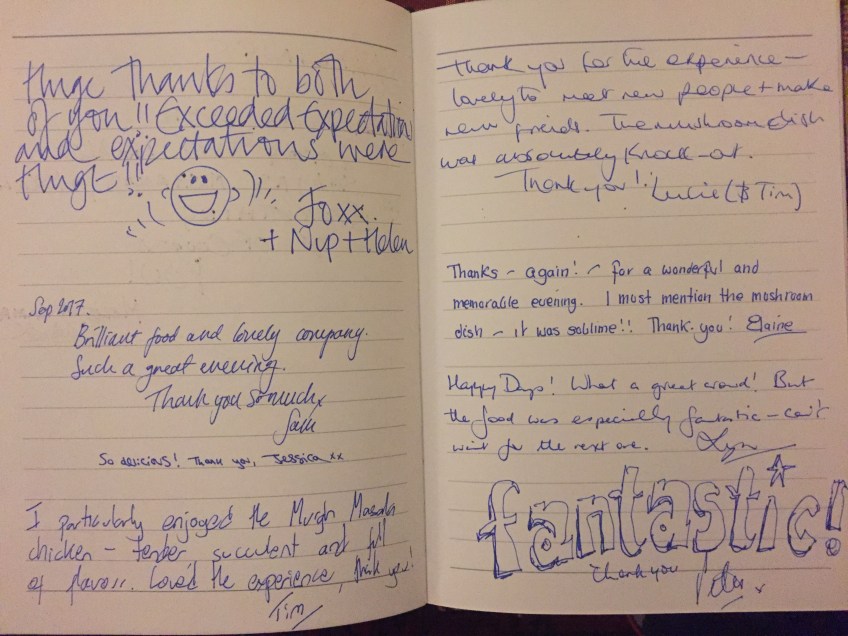 Huge Thanks to both
of you!! Exceeded Expectations
and expectations were
Huge!!
Foxx.
+ Nip + Helen
Sep 2017.
Brilliant food and lovely company.
Such a great evening.
Thank you so much x
So delicious! Thank you, Jessica xx
I particularly enjoyed the Murgh Masala
chicken - tender succulent and full
of flavour. Loved the experience, thank you!
Tim
Thank you for the experience -
lovely to meet new people + make
new friends. The mushroom dish
was absolutely knock-out.
Thank you! Lucie (& Tim)
Thanks - again! - for a wonderful and
memorable evening. I must mention the mushroom
dish - it was sublime!! Thank you! Elaine
Happy Days! What a great crowd! But
the food was especially fantastic - can't
wait for the next one. Lyn
fantastic!
Thank you